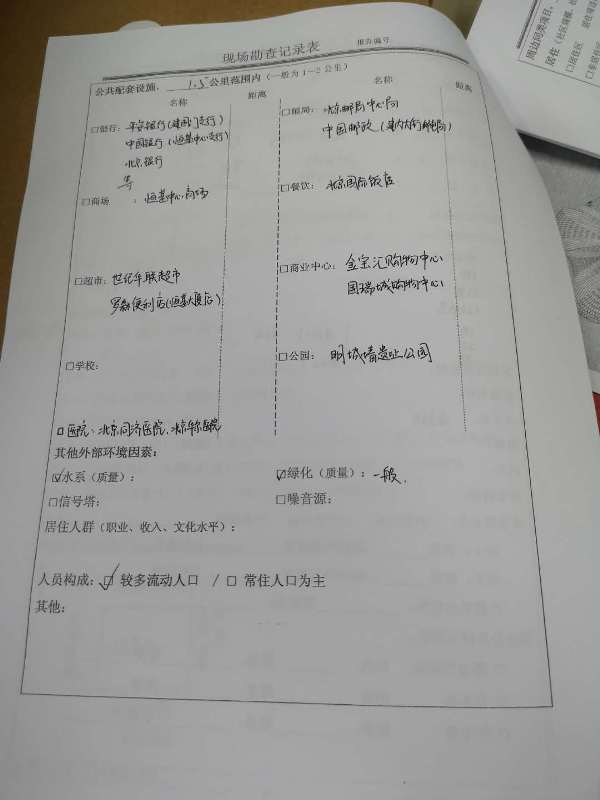 现场勘查记录表
报告编号
公共配套设施, 1.5 公里范围内（一般为1－2公里）
名称 距离 名称 距离
□银行: 平安银行(建国门支行)
中国银行(恒基中心支行)
北京银行
等
□邮局: 北京邮局中心局
中国邮政(建内大街邮电局)
□商场 : 恒基中心商场
□餐饮: 北京国际饭店
□超市: 世纪华联超市
罗森便利店(恒基大厦店)
□商业中心: 金宝汇购物中心
国瑞城购物中心
□学校:
□公园: 明城墙遗址公园
□医院: 北京同济医院、北京
其他外部环境因素:
☑水系（质量）:
☑绿化（质量）: 一般.
□信号塔:
□噪音源:
居住人群（职业、收入、文化水平）:
人员构成: ☑ 较多流动人口 / □ 常住人口为主
其他:
周边同类项目,
居住
□居住区